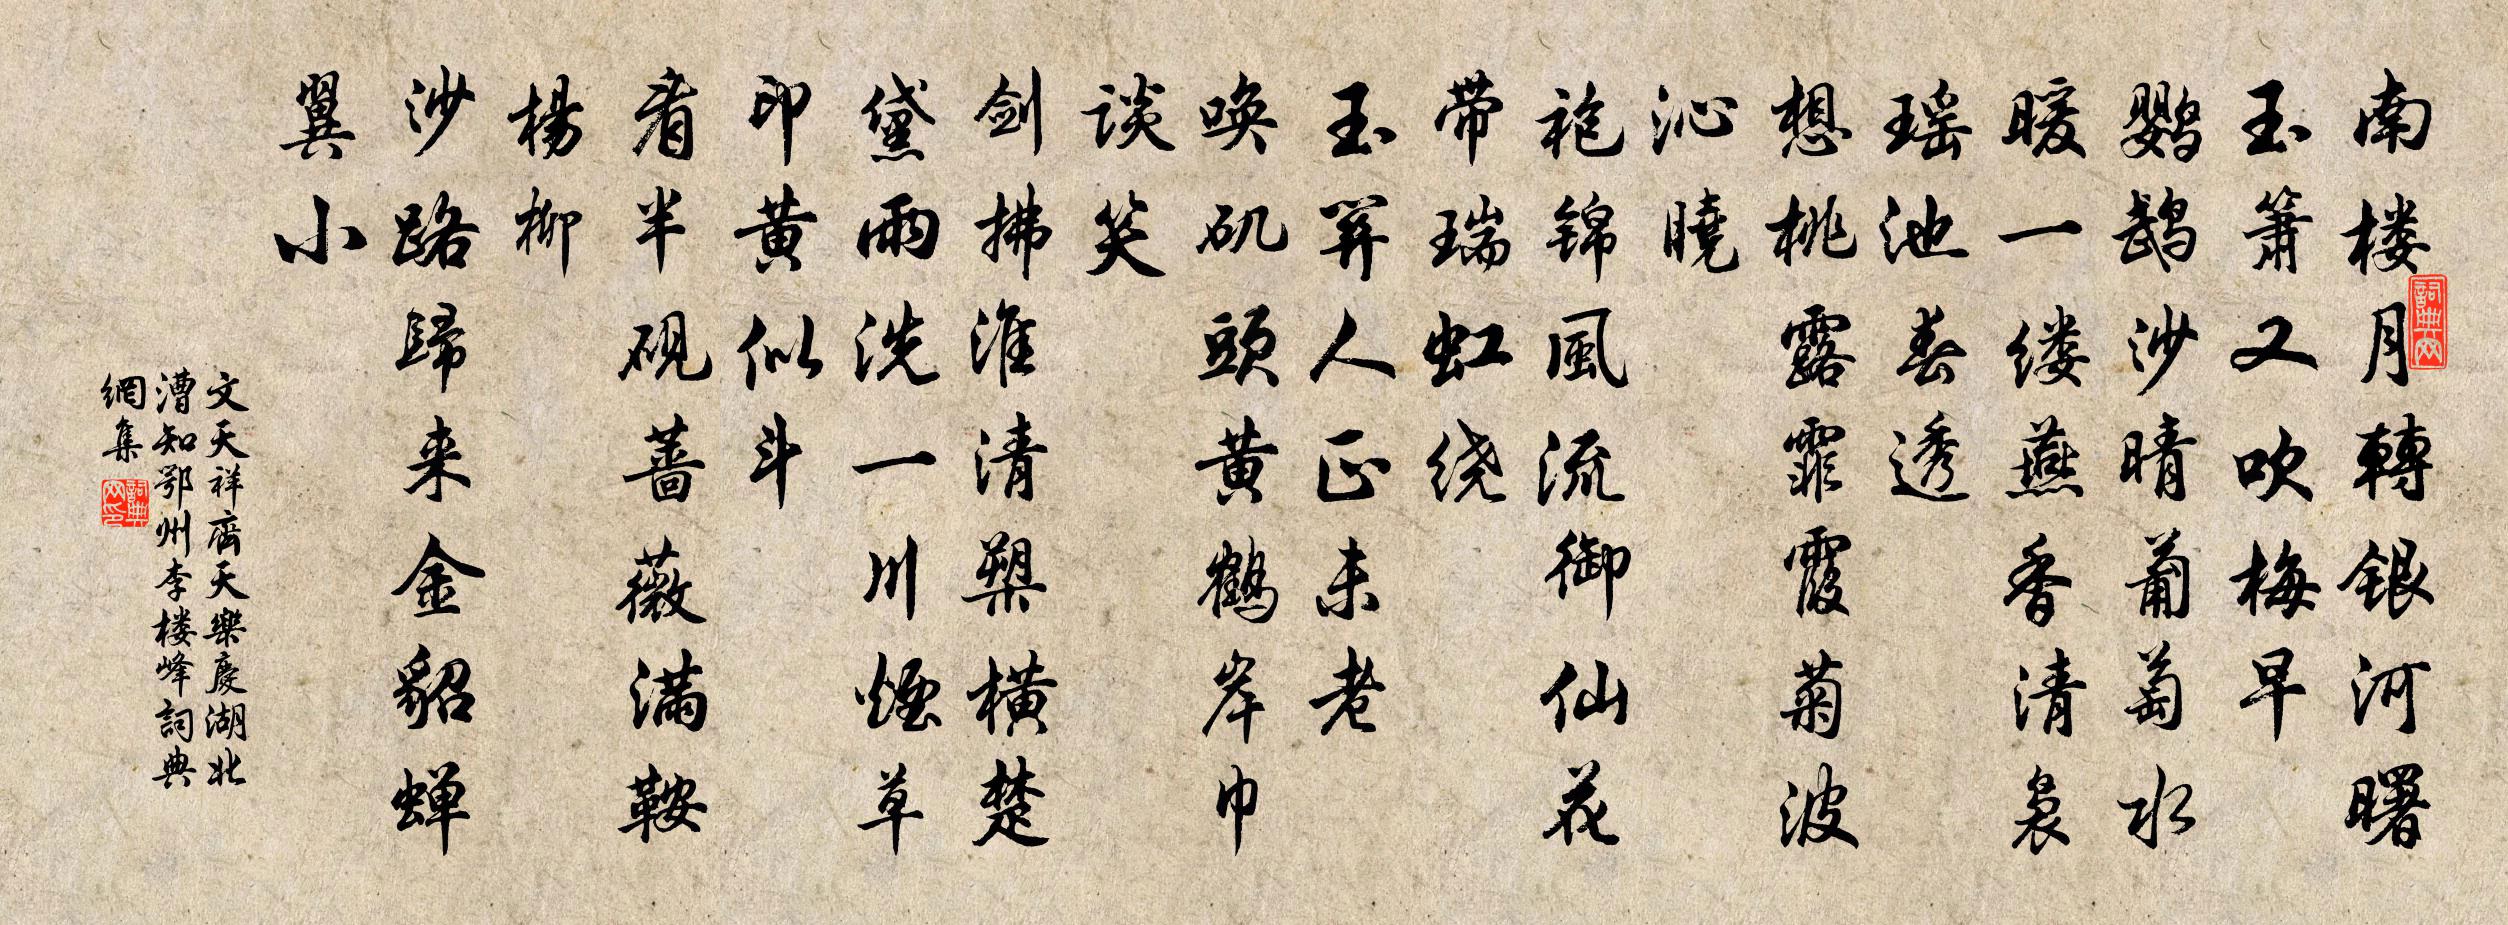 南楼月轉銀河曙
玉簫又吹梅早
鸚鵡沙晴葡萄水
暖一缕燕香清袅
瑶池春透
想桃露霏霞菊波
沁曉
袍锦風流御仙花
带瑞虹绕
玉关人正未老
唤矶頭黄鶴岸巾
谈笑
剑拂淮清槊横楚
黛雨洗一川煙草
印黄似斗
看半砚蔷薇满鞍
楊柳
沙路歸来金貂蝉
翼小
文天祥齊天樂慶湖北
漕知鄂州李楼峰詞典
網集
詞典网
詞典网印